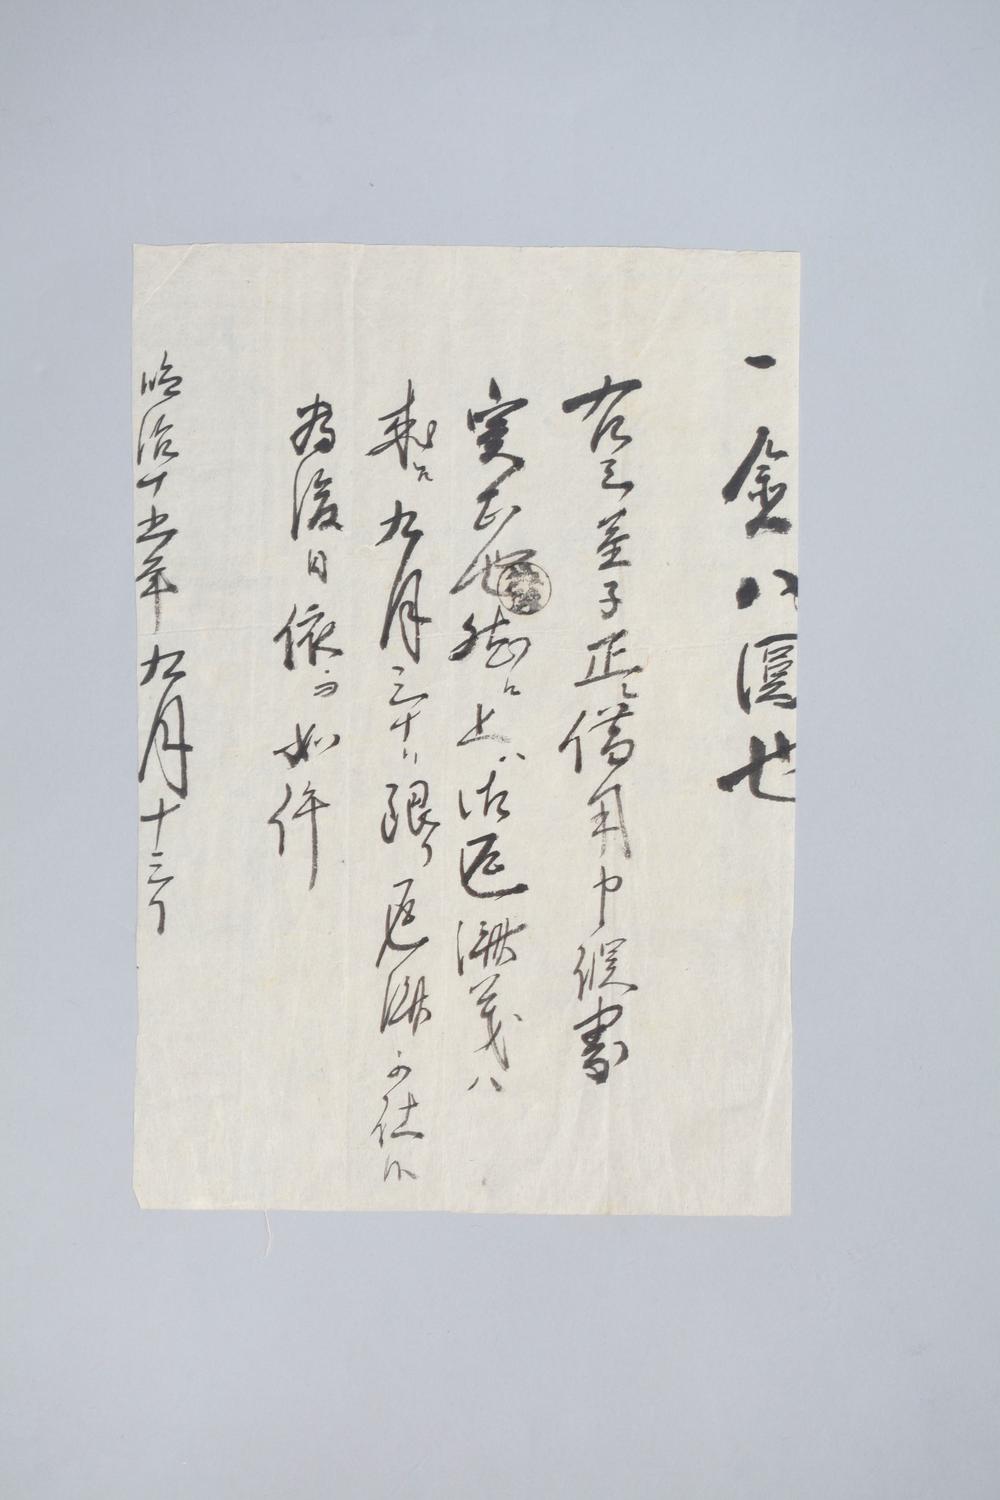 一金八円也
右之金子正ニ借用申候書
実正也然ル上ハ御返済義ハ
来ル九月三十日限り返済可仕候
為後日依而如件
明治十五年九月十三日